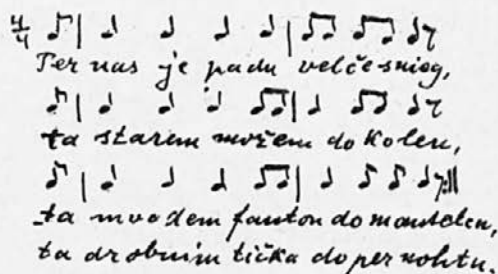 4/4
Per nas je padu velče sniog,
ta starem možem do kolen,
ta mvadem fanton do mandelcu,
ta drobnim tička do pernohtu.